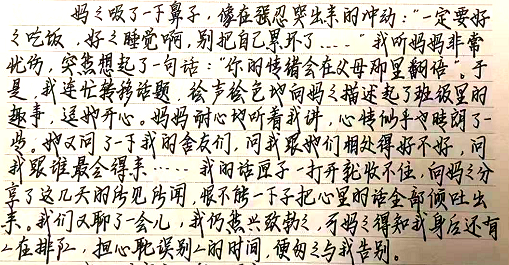 妈々吸了一下鼻子，像在强忍哭出来的冲动："一定要好
々吃饭，好々睡觉啊，别把自己累坏了……"我听妈妈非常
悲伤，突然想起了一句话："你的情绪会在父母那里翻倍"。于
是，我连忙转移话题，绘声绘色地向妈々描述起了班级里的
趣事，逗她开心。妈妈耐心地听着我讲，心情似乎也晴朗了一
些。她又问了一下我的舍友们，问我跟她们相处得好不好，问
我跟谁最合得来……我的话匣子一打开就收不住，向妈々分
享了这几天的所见所闻，恨不能一下子把心里的话全部倾吐出
来。我们又聊了一会儿，我仍然兴致勃々，可妈々得知我身后还有
人在排队，担心耽误别人的时间，便匆々与我告别。